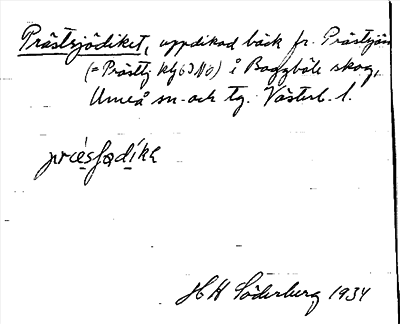 Prästsjödiket, uppdikad bäck fr. Prästsjön
(= Prästtj kbl 63 NO) å Baggböle skog,
Umeå sn. och tg. Västerb. l.
H H Söderberg 1934